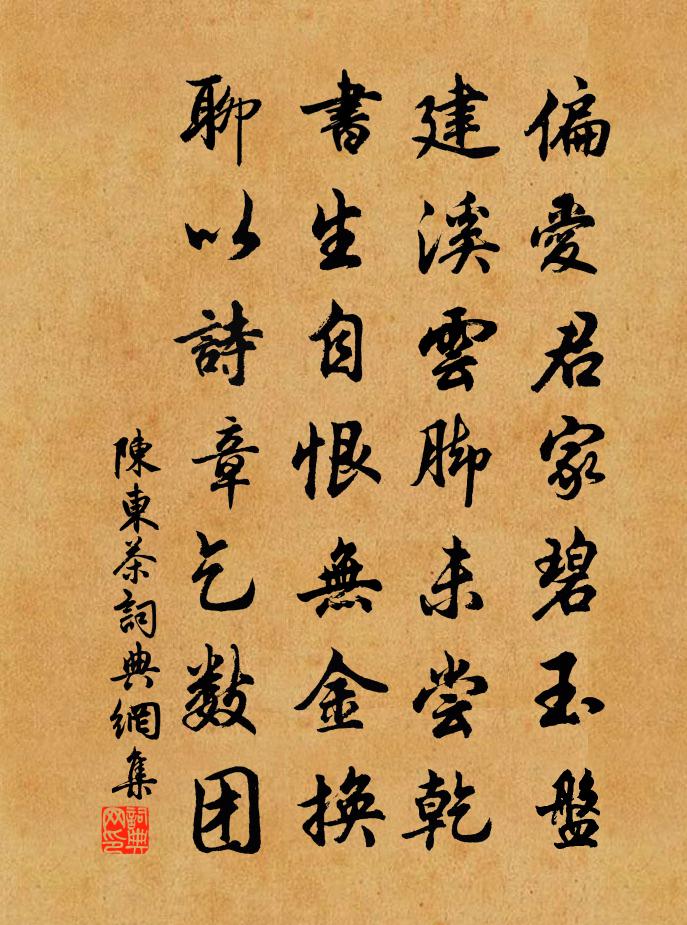 偏愛君家碧玉盤
建溪雲脚未尝乾
書生自恨無金換
聊以詩章乞數团
陳東茶詞典網集
詞典网印